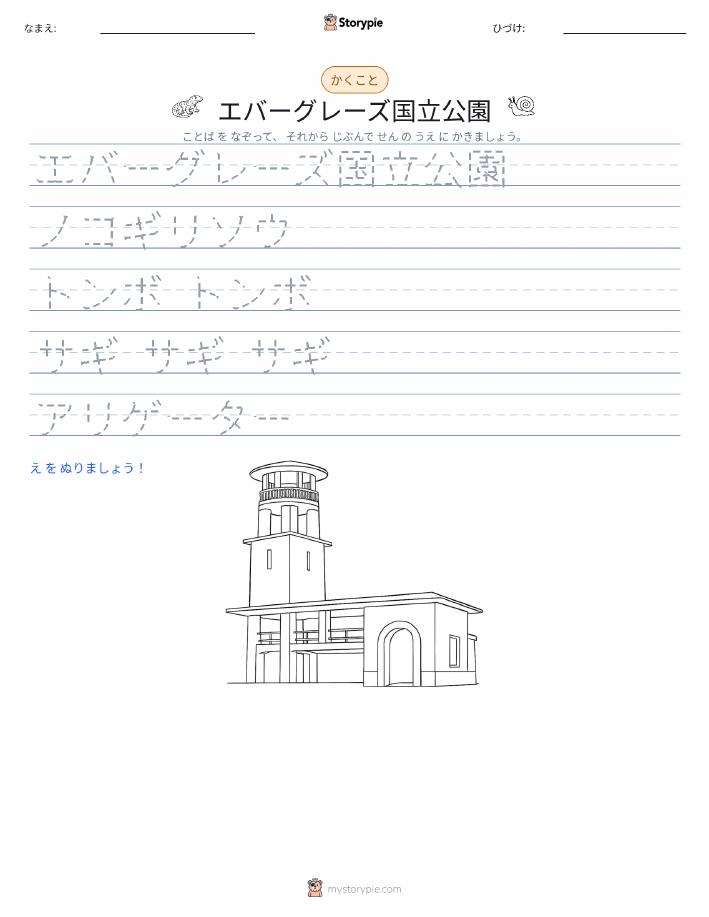 なまえ:
Storypie
ひづけ:
かくこと
エバーグレーズ国立公園
ことば を なぞって、 それから じぶんで せん の うえ に かきましょう。
エバーグレーズ国立公園
ノコギリソウ
トンボ トンボ
サギ サギ サギ
アリゲーター
え を ぬりましょう！
mystorypie.com